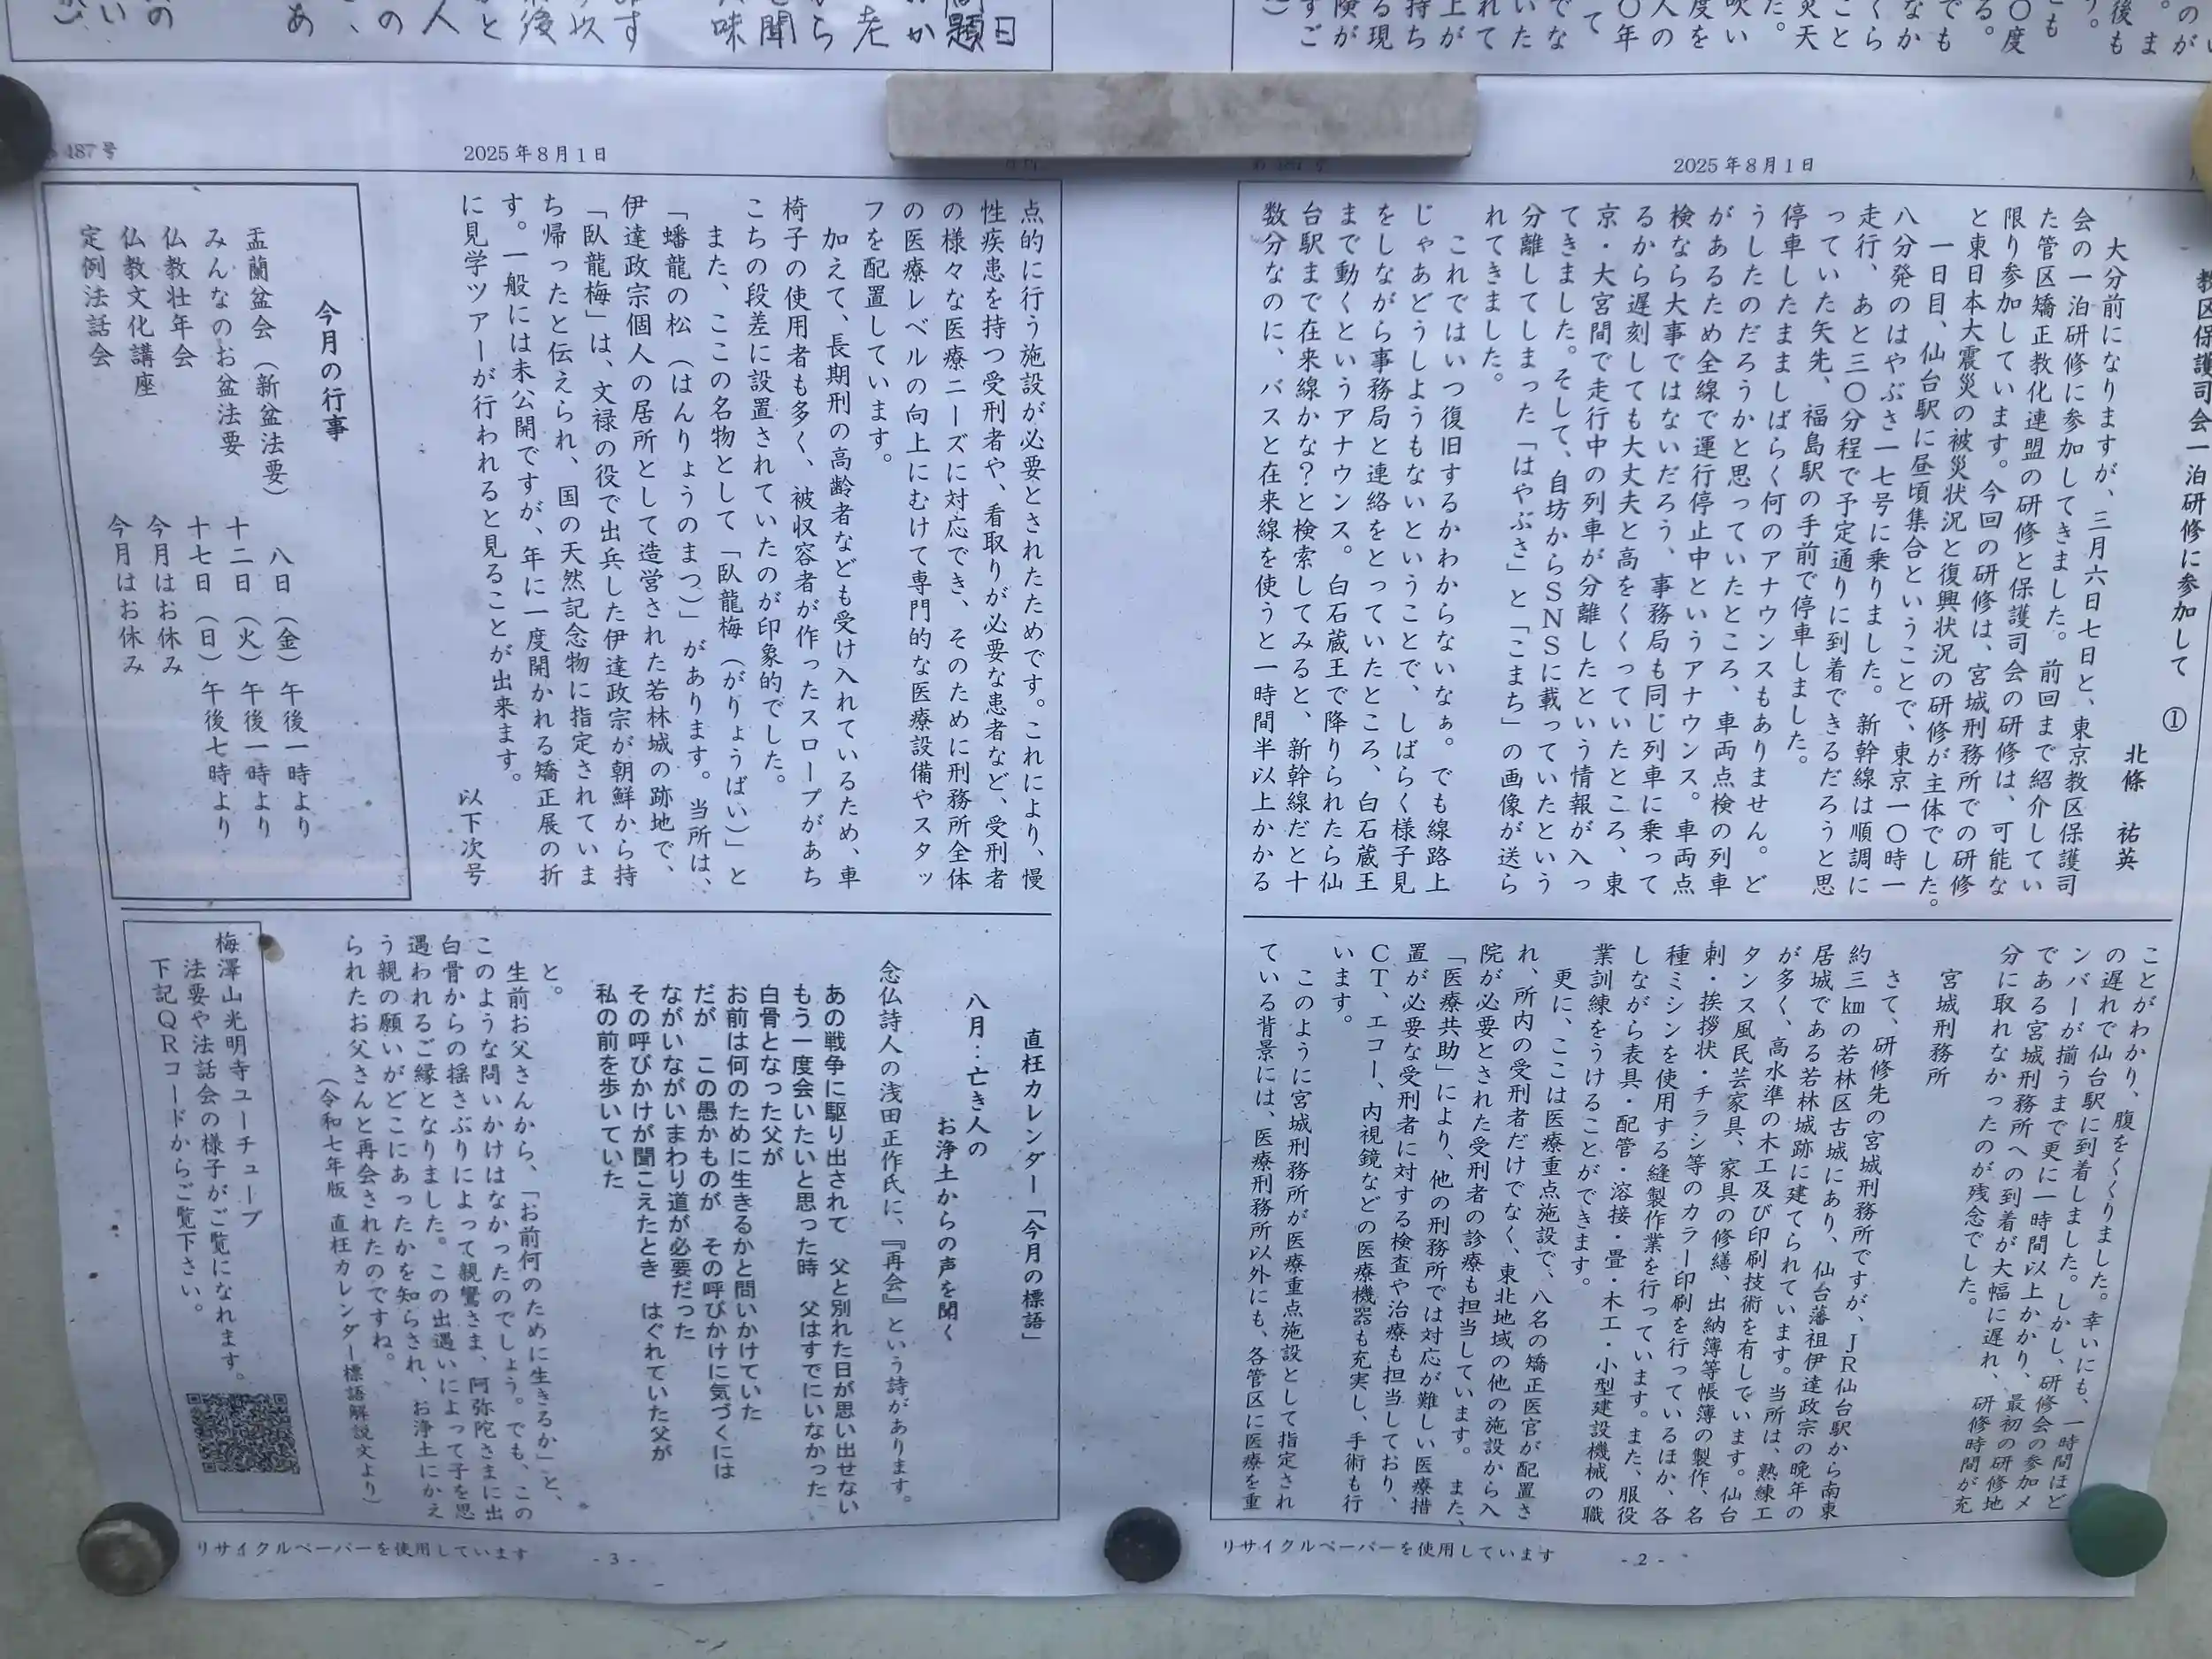 2025年8月1日
教区保護司会一泊研修に参加して ①
北條 祐英
大分前になりますが、三月六日七日と、東京教区保護司
会の一泊研修に参加してきました。前回まで紹介してい
た管区矯正教化連盟の研修と保護司会の研修は、可能な
限り参加しています。今回の研修は、宮城刑務所での研修
と東日本大震災の被災状況と復興状況の研修が主体でした。
一日目、仙台駅に昼頃集合ということで、東京一〇時一
八分発のはやぶさ一七号に乗りました。新幹線は順調に
走行、あと三〇分程で予定通りに到着できるだろうと思
っていた矢先、福島駅の手前で停車しました。
停車したまましばらく何のアナウンスもありません。ど
うしたのだろうかと思っていたところ、車両点検の列車
があるため全線で運行停止中というアナウンス。車両点
検なら大事ではないだろう、事務局も同じ列車に乗って
るから遅刻しても大丈夫と高をくくっていたところ、東
京・大宮間で走行中の列車が分離したという情報が入っ
てきました。そして、自坊からSNSに載っていたという
分離してしまった「はやぶさ」と「こまち」の画像が送ら
れてきました。
これではいつ復旧するかわからないなぁ。でも線路上
じゃあどうしようもないということで、しばらく様子見
をしながら事務局と連絡をとっていたところ、白石蔵王
まで動くというアナウンス。白石蔵王で降りられたら仙
台駅まで在来線かな？と検索してみると、新幹線だと十
数分なのに、バスと在来線を使うと一時間半以上かかる
ことがわかり、腹をくくりました。幸いにも、一時間ほど
の遅れで仙台駅に到着しました。しかし、研修会の参加メ
ンバーが揃うまで更に一時間以上かかり、最初の研修地
である宮城刑務所への到着が大幅に遅れ、研修時間が充
分に取れなかったのが残念でした。
宮城刑務所
さて、研修先の宮城刑務所ですが、JR仙台駅から南東
約三㎞の若林区古城にあり、仙台藩祖伊達政宗の晩年の
居城である若林城跡に建てられています。当所は、熟練工
が多く、高水準の木工及び印刷技術を有しています。仙台
タンス風民芸家具、家具の修繕、出納簿等帳簿の製作、名
刺・挨拶状・チラシ等のカラー印刷を行っているほか、各
種ミシンを使用する縫製作業を行っています。また、服役
しながら表具・配管・溶接・畳・木工・小型建設機械の職
業訓練をうけることができます。
更に、ここは医療重点施設で、八名の矯正医官が配置さ
れ、所内の受刑者だけでなく、東北地域の他の施設から入
院が必要とされた受刑者の診療も担当しています。また、
「医療共助」により、他の刑務所では対応が難しい医療措
置が必要な受刑者に対する検査や治療も担当しており、
CT、エコー、内視鏡などの医療機器も充実し、手術も行
います。
このように宮城刑務所が医療重点施設として指定され
ている背景には、医療刑務所以外にも、各管区に医療を重
リサイクルペーパーを使用しています
- 2 -
2025年8月1日
487号
点的に行う施設が必要とされたためです。これにより、慢
性疾患を持つ受刑者や、看取りが必要な患者など、受刑者
の様々な医療ニーズに対応でき、そのために刑務所全体
の医療レベルの向上にむけて専門的な医療設備やスタッ
フを配置しています。
加えて、長期刑の高齢者なども受け入れているため、車
椅子の使用者も多く、被収容者が作ったスロープがあち
こちの段差に設置されていたのが印象的でした。
また、ここの名物として「臥龍梅（がりょうばい）」と
「蟠龍の松（はんりょうのまつ）」があります。当所は、
伊達政宗個人の居所として造営された若林城の跡地で、
「臥龍梅」は、文禄の役で出兵した伊達政宗が朝鮮から持
ち帰ったと伝えられ、国の天然記念物に指定されていま
す。一般には未公開ですが、年に一度開かれる矯正展の折
に見学ツアーが行われると見ることが出来ます。
以下次号
今月の行事
盂蘭盆会（新盆法要） 八日（金）午後一時より
みんなのお盆法要 十二日（火）午後一時より
仏教壮年会 十七日（日）午後七時より
仏教文化講座 今月はお休み
定例法話会 今月はお休み
直枉カレンダー「今月の標語」
八月：亡き人の
お浄土からの声を聞く
念仏詩人の浅田正作氏に、『再会』という詩があります。
あの戦争に駆り出されて 父と別れた日が思い出せない
もう一度会いたいと思った時 父はすでにいなかった
白骨となった父が
お前は何のために生きるかと問いかけていた
だが この愚かものが その呼びかけに気づくには
ながいながいまわり道が必要だった
その呼びかけが聞こえたとき はぐれていた父が
私の前を歩いていた
と。
生前お父さんから、「お前何のために生きるか」と、
このような問いかけはなかったのでしょう。でも、この
白骨からの揺さぶりによって親鸞さま、阿弥陀さまに出
遇われるご縁となりました。この出遇いによって子を思
う親の願いがどこにあったかを知らされ、お浄土にかえ
られたお父さんと再会されたのですね。
（令和七年版 直枉カレンダー標語解説文より）
梅澤山光明寺ユーチューブ
法要や法話会の様子がご覧になれます。
下記QRコードからご覧下さい。
リサイクルペーパーを使用しています
- 3 -